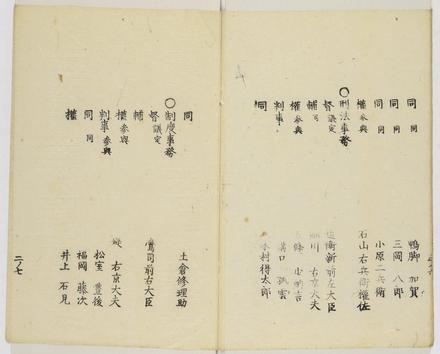 同 同 鴨脚 加賀
同 同 三岡 八郎
同 同 小原二兵衛
權 参與 石山右兵衛權佐
〇刑法事務
督 議定 近衛新前左大臣
輔 細川 右京大夫
權 参與
判事 溝口
同 木村得太郎
同 土倉修理助
〇制度事務
督 議定 鷹司前右大臣
輔
權 参與 右京大夫
判事 参與 松室 豊後
同 同 福岡 藤次
權 井上 石見
二ノ七